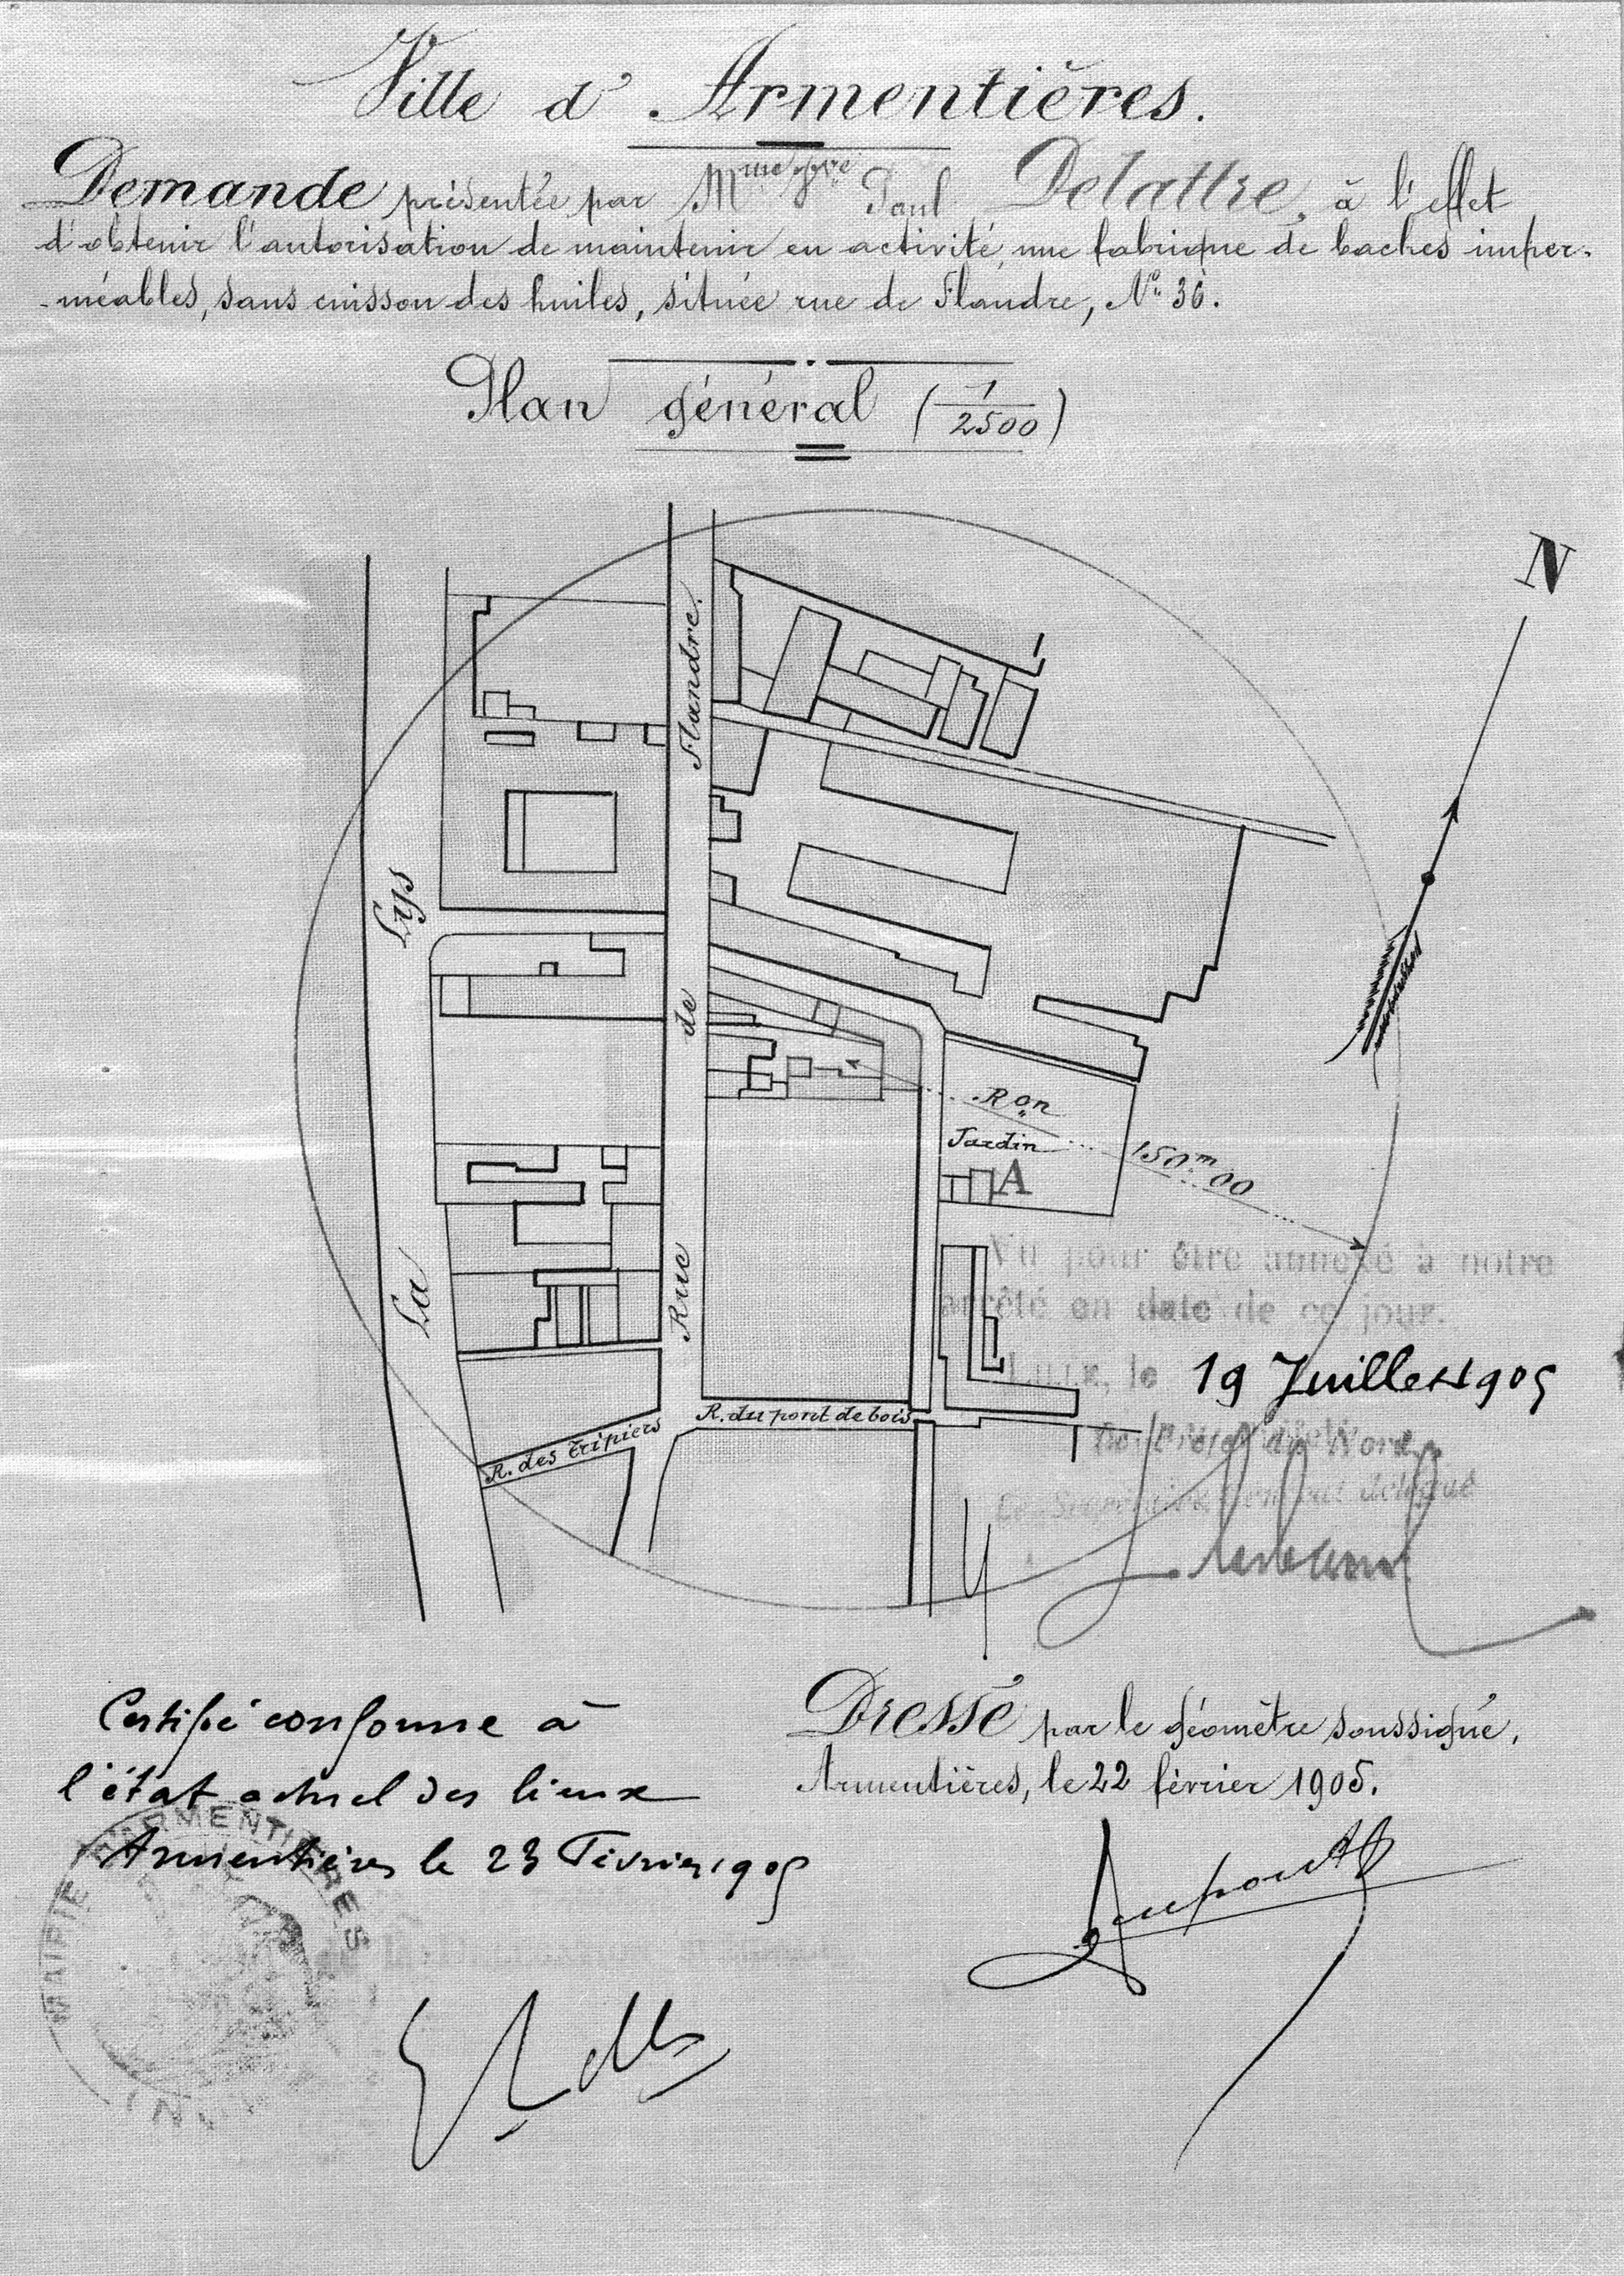 Ville d'Armentières.
Demande présentée par Mme Vve Paul Delattre, à l'effet
d'obtenir l'autorisation de maintenir en activité, une fabrique de baches imper-
-méables, sans cuisson des huiles, située rue de Flandre, No 36.
Plan général (1/2500)
N
Rue de Flandre.
La Lys
Ron 150m00
Jardin
A
Vu pour être annexé à notre
arrêté en date de ce jour.
Lille, le 19 Juillet 1905
R. du pont de bois
R. des Tripiers
Le Préfet du Nord,
Le Secrétaire Général délégué
Certifié conforme à
l'état actuel des lieux
Armentières le 23 Février 1905
Dressé par le géomètre soussigné,
Armentières, le 22 février 1905.
MAIRIE D'ARMENTIÈRES